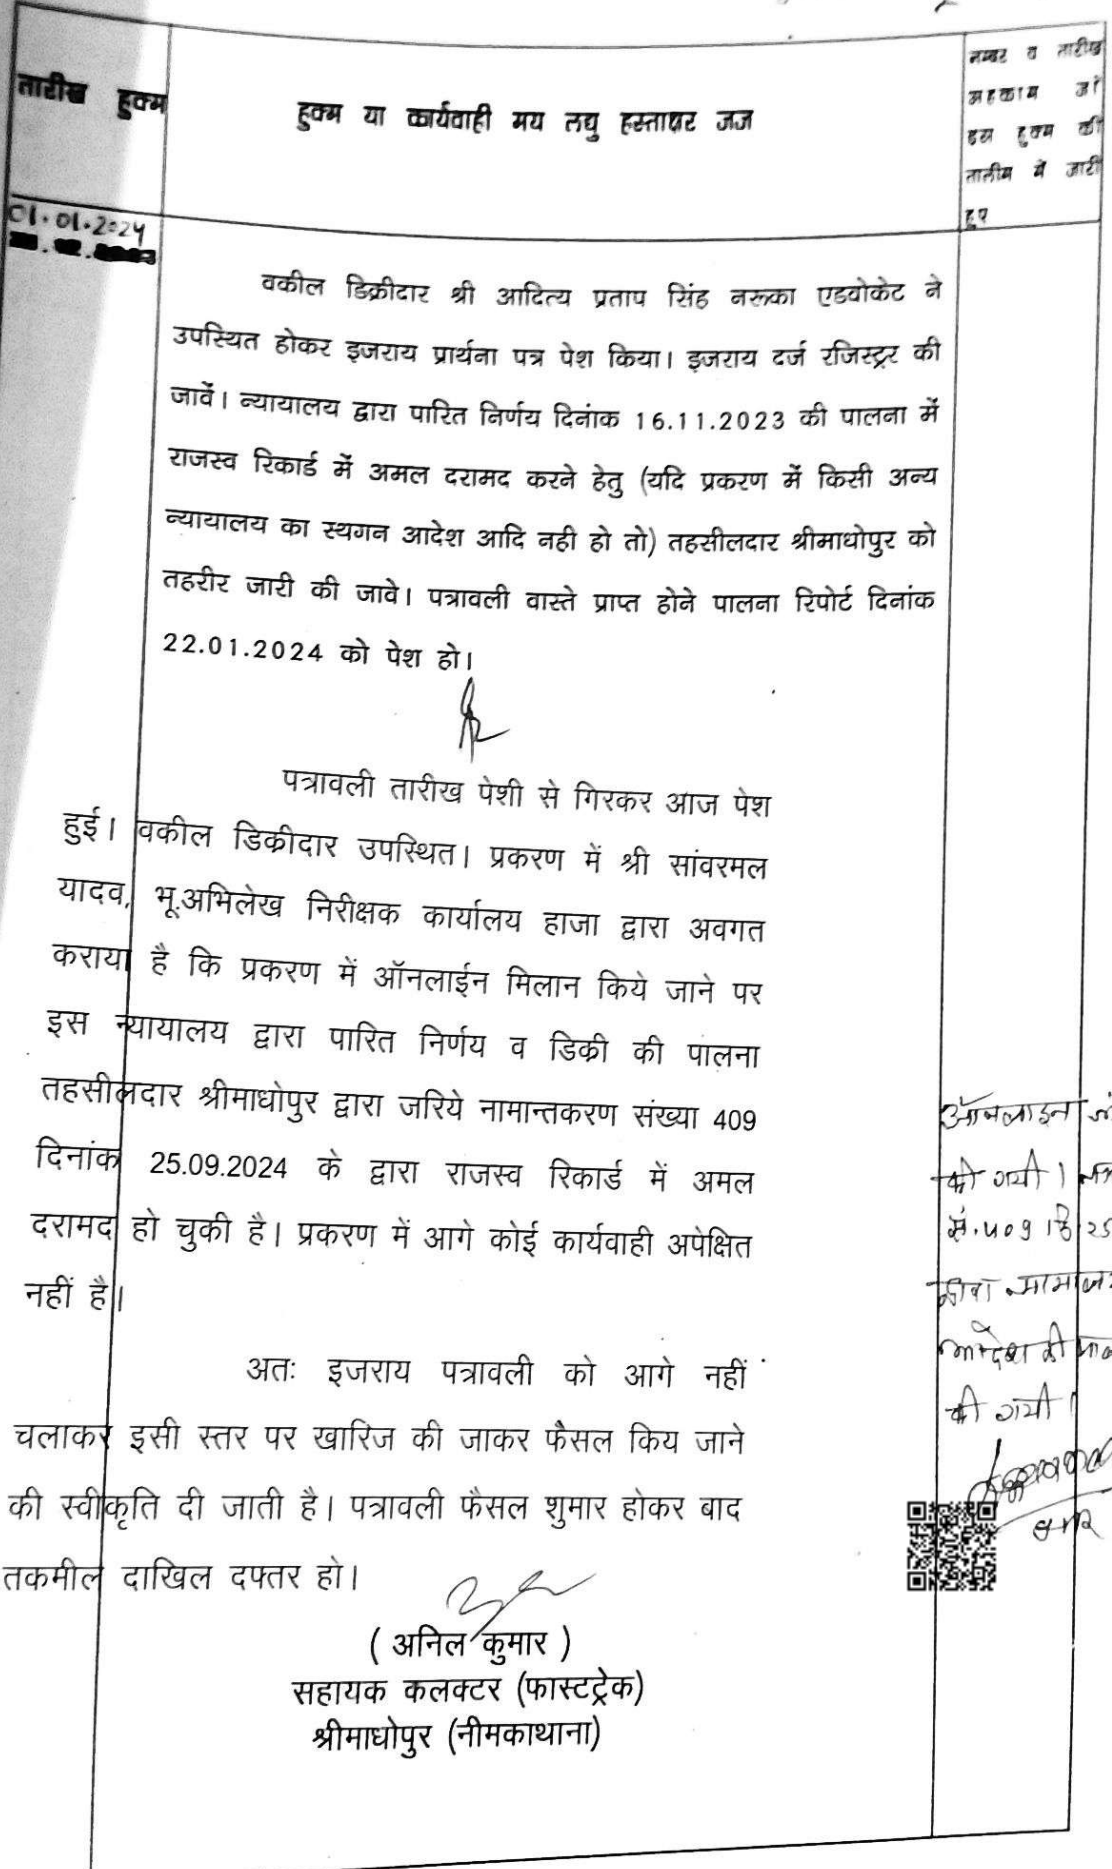 तारीख हुक्म
हुक्म या कार्यवाही मय लघु हस्ताक्षर जज
नम्बर व तारीख
अहकाम जो
इस हुक्म की
तालीम में जारी
हुए
01.01.2024
वकील डिक्रीदार श्री आदित्य प्रताप सिंह नरूका एडवोकेट ने
उपस्थित होकर इजराय प्रार्थना पत्र पेश किया। इजराय दर्ज रजिस्ट्रर की
जावें। न्यायालय द्वारा पारित निर्णय दिनांक 16.11.2023 की पालना में
राजस्व रिकार्ड में अमल दरामद करने हेतु (यदि प्रकरण में किसी अन्य
न्यायालय का स्थगन आदेश आदि नही हो तो) तहसीलदार श्रीमाधोपुर को
तहरीर जारी की जावे। पत्रावली वास्ते प्राप्त होने पालना रिपोर्ट दिनांक
22.01.2024 को पेश हो।
पत्रावली तारीख पेशी से गिरकर आज पेश
हुई। वकील डिक्रीदार उपस्थित। प्रकरण में श्री सांवरमल
यादव, भू.अभिलेख निरीक्षक कार्यालय हाजा द्वारा अवगत
कराया है कि प्रकरण में ऑनलाईन मिलान किये जाने पर
इस न्यायालय द्वारा पारित निर्णय व डिक्री की पालना
तहसीलदार श्रीमाधोपुर द्वारा जरिये नामान्तकरण संख्या 409
दिनांक 25.09.2024 के द्वारा राजस्व रिकार्ड में अमल
दरामद हो चुकी है। प्रकरण में आगे कोई कार्यवाही अपेक्षित
नहीं है।
ऑनलाइन
की गयी।
सं. 409 दि. 25
आदेश की
की गयी।
अतः इजराय पत्रावली को आगे नहीं
चलाकर इसी स्तर पर खारिज की जाकर फैसल किय जाने
की स्वीकृति दी जाती है। पत्रावली फैसल शुमार होकर बाद
तकमील दाखिल दफ्तर हो।
( अनिल कुमार )
सहायक कलक्टर (फास्टट्रेक)
श्रीमाधोपुर (नीमकाथाना)